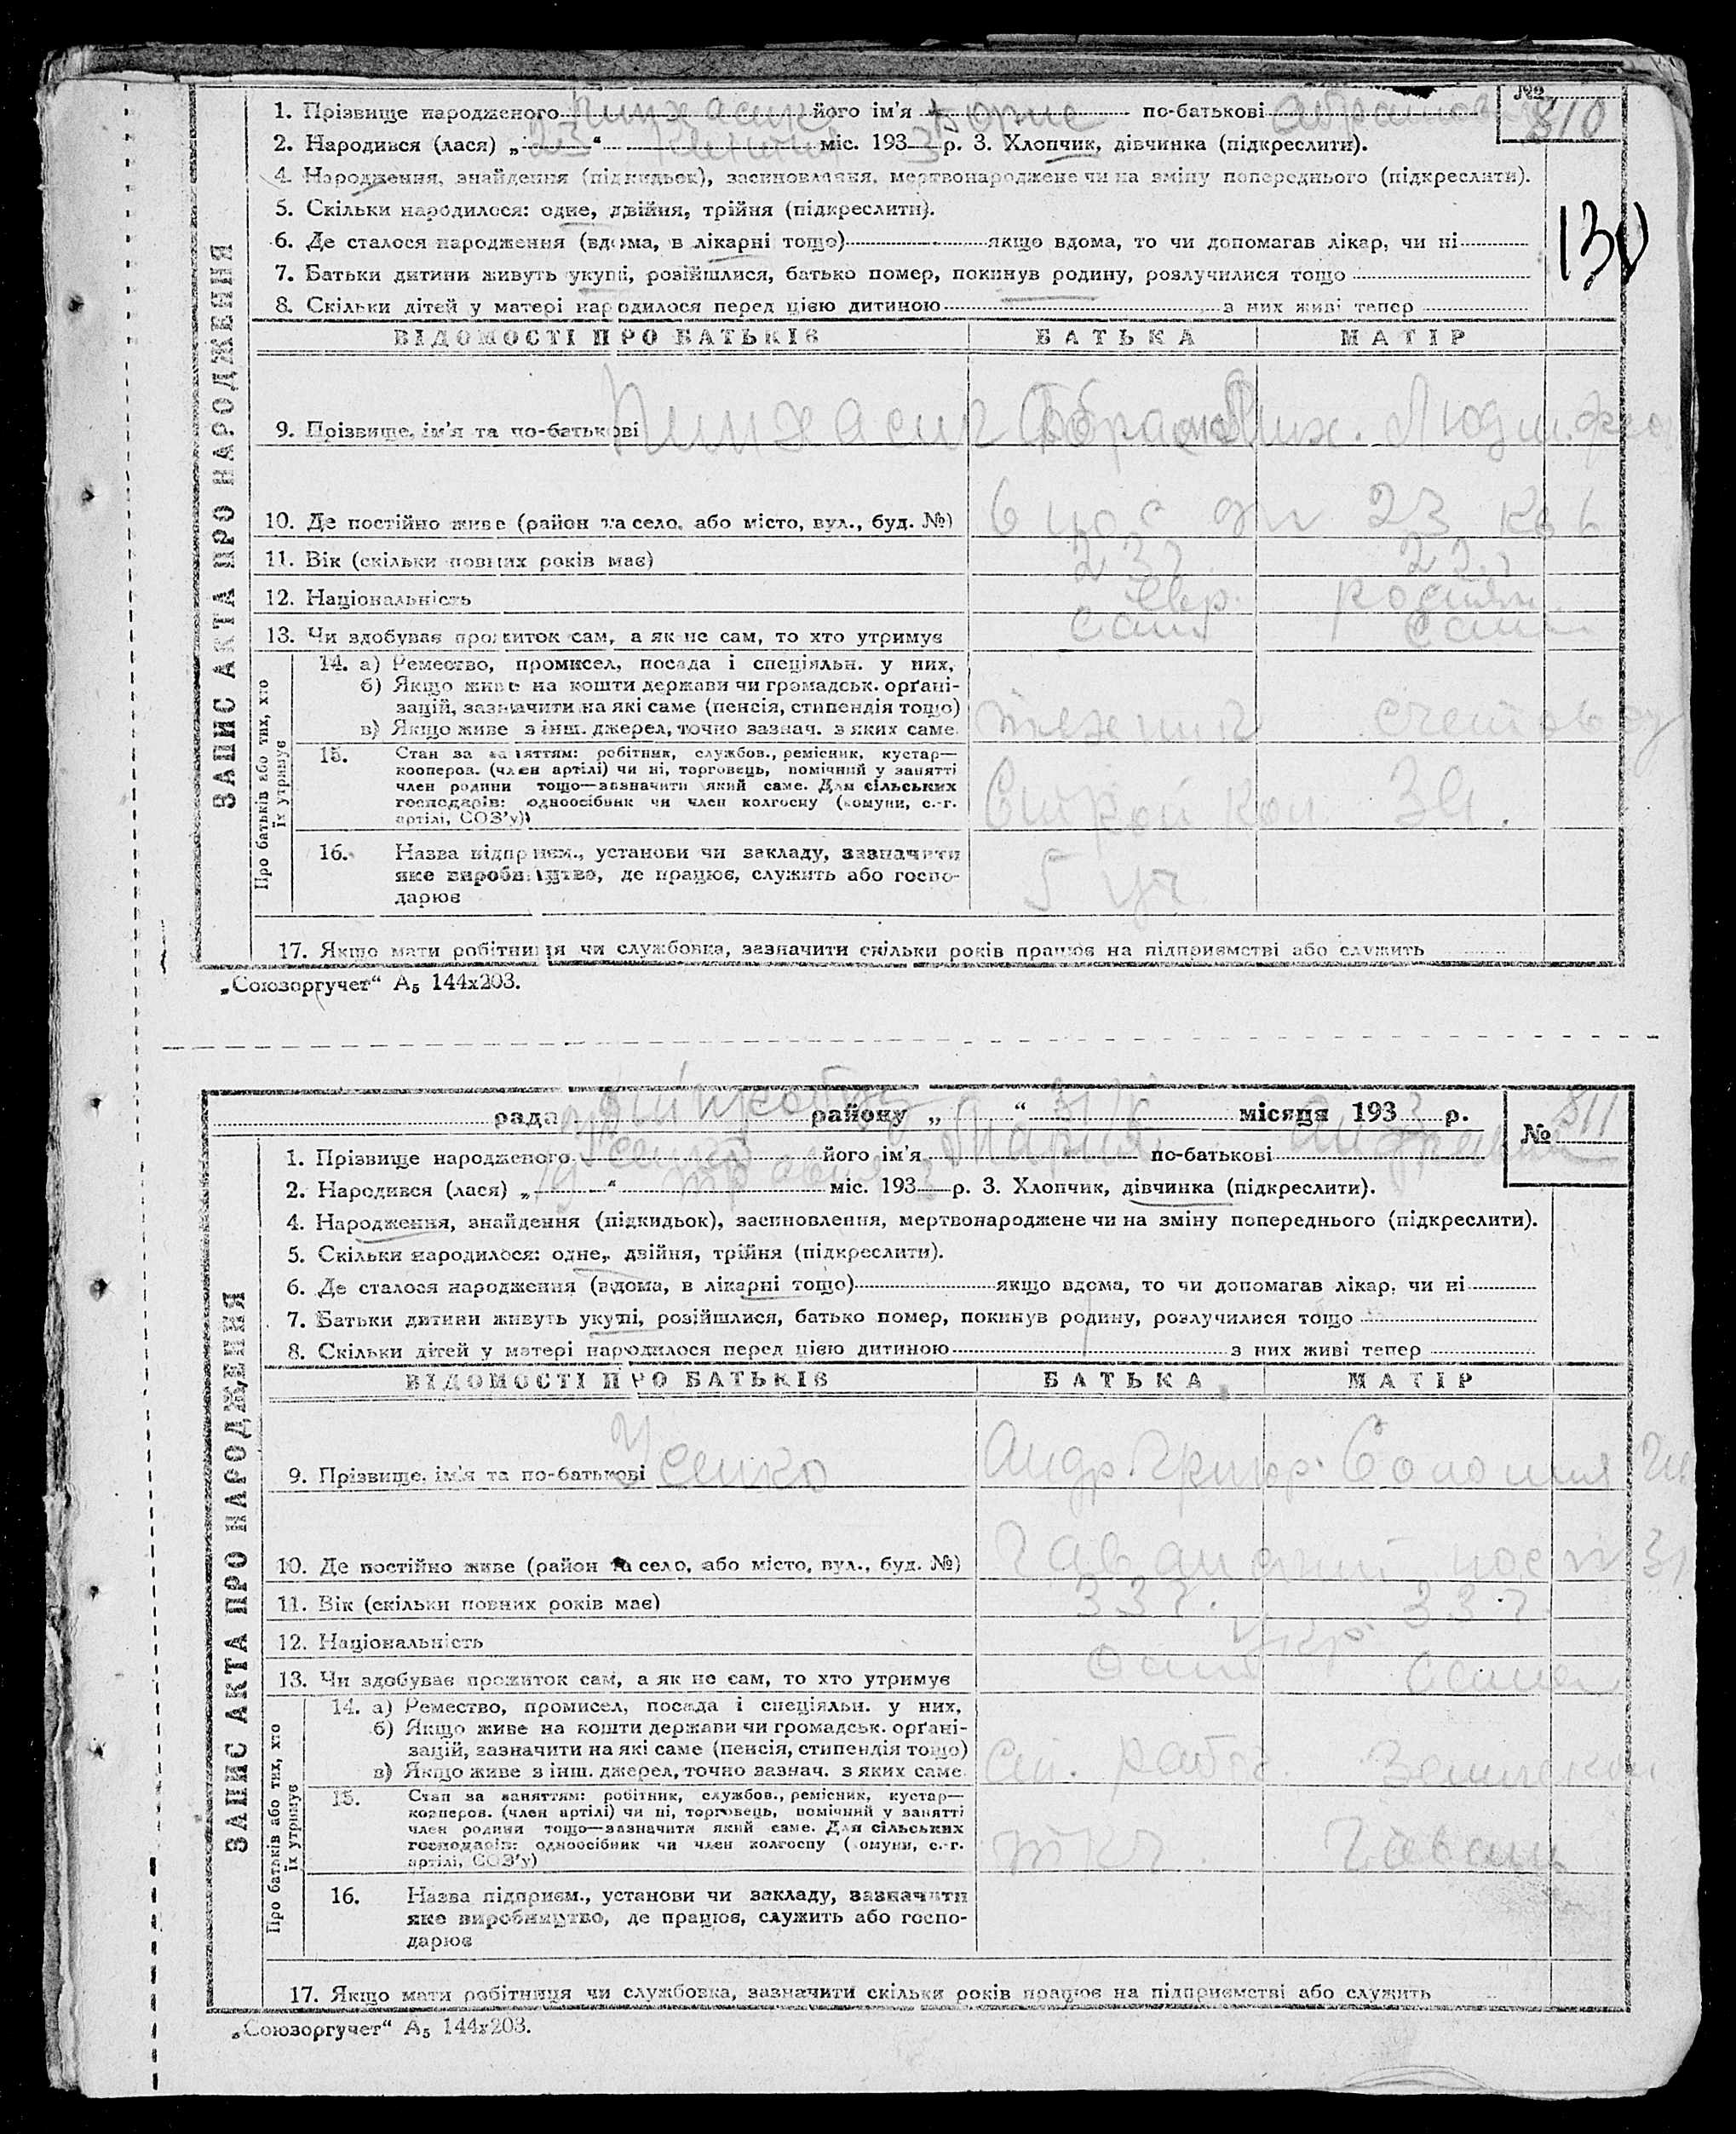 № 810
1. Прізвище народженого Пинхасик його ім'я Борис по-батькові Абрамов
2. Народився (лася) „23“ міс. 1933 р. 3. Хлопчик, дівчинка (підкреслити).
4. Народження, знайдення (підкидьок), засиновлення, мертвонароджене чи на зміну попереднього (підкреслити).
5. Скільки народилося: одне, двійня, трійня (підкреслити).
130
6. Де сталося народження (вдома, в лікарні тощо) якщо вдома, то чи допомагав лікар, чи ні
7. Батьки дитини живуть укупі, розійшлися, батько помер, покинув родину, розлучилися тощо
8. Скільки дітей у матері народилося перед цією дитиною з них живі тепер
ЗАПИС АКТА ПРО НАРОДЖЕННЯ
ВІДОМОСТІ ПРО БАТЬКІВ БАТЬКА МАТІР
9. Прізвище, ім'я та по-батькові Пинхасик Абрам Пинх. Людм.
10. Де постійно живе (район та село, або місто, вул., буд. №) 6 23 кв 6
11. Вік (скільки повних років має) 23 22
12. Національність Євр. росіян.
13. Чи здобуває прожиток сам, а як не сам, то хто утримує сам сама
Про батьків або тих, хто їх утримує
14. а) Ремество, промисел, посада і спеціяльн. у них,
б) Якщо живе на кошти держави чи громадськ. орґані-
зацій, зазначити на які саме (пенсія, стипендія тощо)
в) Якщо живе з інш. джерел, точно зазнач. з яких саме техник счетовод
15. Стан за заняттям: робітник, службов., ремісник, кустар—
кооперов. (член артілі) чи ні, торговець, помічний у занятті
член родини тощо—зазначити який саме. Для сільських
господарів: одноосібник чи член колгоспу (комуни, с.-г.
артілі, СОЗ'у)
16. Назва підприєм., установи чи закладу, зазначити
яке виробництво, де працює, служить або госпо-
дарює 5 уч
17. Якщо мати робітниця чи службовка, зазначити скільки років працює на підприємстві або служить
„Союзоргучет“ А₅ 144х203.
рада району „ “ місяця 193 р.
№ 811
1. Прізвище народженого Усенко його ім'я Мария по-батькові
2. Народився (лася) „19“ травня міс. 193 р. 3. Хлопчик, дівчинка (підкреслити).
4. Народження, знайдення (підкидьок), засиновлення, мертвонароджене чи на зміну попереднього (підкреслити).
5. Скільки народилося: одне, двійня, трійня (підкреслити).
6. Де сталося народження (вдома, в лікарні тощо) якщо вдома, то чи допомагав лікар, чи ні
7. Батьки дитини живуть укупі, розійшлися, батько помер, покинув родину, розлучилися тощо
8. Скільки дітей у матері народилося перед цією дитиною з них живі тепер
ЗАПИС АКТА ПРО НАРОДЖЕННЯ
ВІДОМОСТІ ПРО БАТЬКІВ БАТЬКА МАТІР
9. Прізвище, ім'я та по-батькові Усенко Андр. Григор. Соломия
10. Де постійно живе (район та село, або місто, вул., буд. №) 31
11. Вік (скільки повних років має) 33 33
12. Національність Укр.
13. Чи здобуває прожиток сам, а як не сам, то хто утримує сам сама
Про батьків або тих, хто їх утримує
14. а) Ремество, промисел, посада і спеціяльн. у них,
б) Якщо живе на кошти держави чи громадськ. орґані-
зацій, зазначити на які саме (пенсія, стипендія тощо)
в) Якщо живе з інш. джерел, точно зазнач. з яких саме
15. Стан за заняттям: робітник, службов., ремісник, кустар—
кооперов. (член артілі) чи ні, торговець, помічний у занятті
член родини тощо—зазначити який саме. Для сільських
господарів: одноосібник чи член колгоспу (комуни, с.-г.
артілі, СОЗ'у) Гавань
16. Назва підприєм., установи чи закладу, зазначити
яке виробництво, де працює, служить або госпо-
дарює
17. Якщо мати робітниця чи службовка, зазначити скільки років працює на підприємстві або служить
„Союзоргучет“ А₅ 144х203.